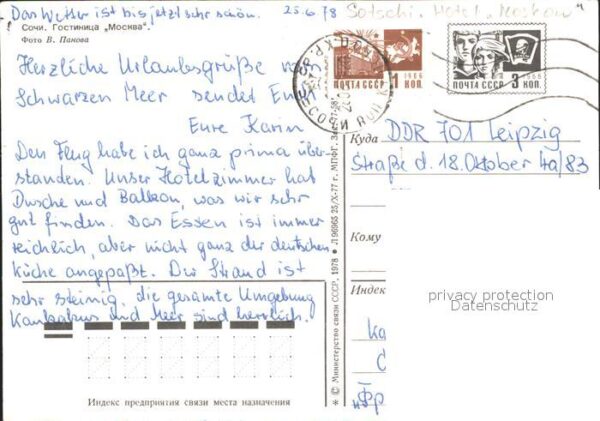 Das Wetter ist bis jetzt sehr schön. 25.6.78 Sotschi, Hotel „Moskau"
Сочи. Гостиница „Москва".
Фото В. Панова
Herzliche Urlaubsgrüße vom
Schwarzen Meer sendet Euch
Eure Karin
Den Flug habe ich ganz prima über-
standen. Unser Hotelzimmer hat
Dusche und Balkon, was wir sehr
gut finden. Das Essen ist immer
reichlich, aber nicht ganz der deutschen
Küche angepaßt. Der Strand ist
sehr steinig, die gesamte Umgebung
Kaukasus und Meer sind herrlich.
Индекс предприятия связи места назначения
* © Министерство связи СССР, 1978 • Л 96965 25/X-77 г. МПФГ.
1966
ПОЧТА СССР 1 КОП.
1966
ПОЧТА СССР 3 КОП.
СОЧИ
Куда DDR 701 Leipzig
Straße d. 18. Oktober 4a/83
Кому
Индекс
privacy protection
Datenschutz